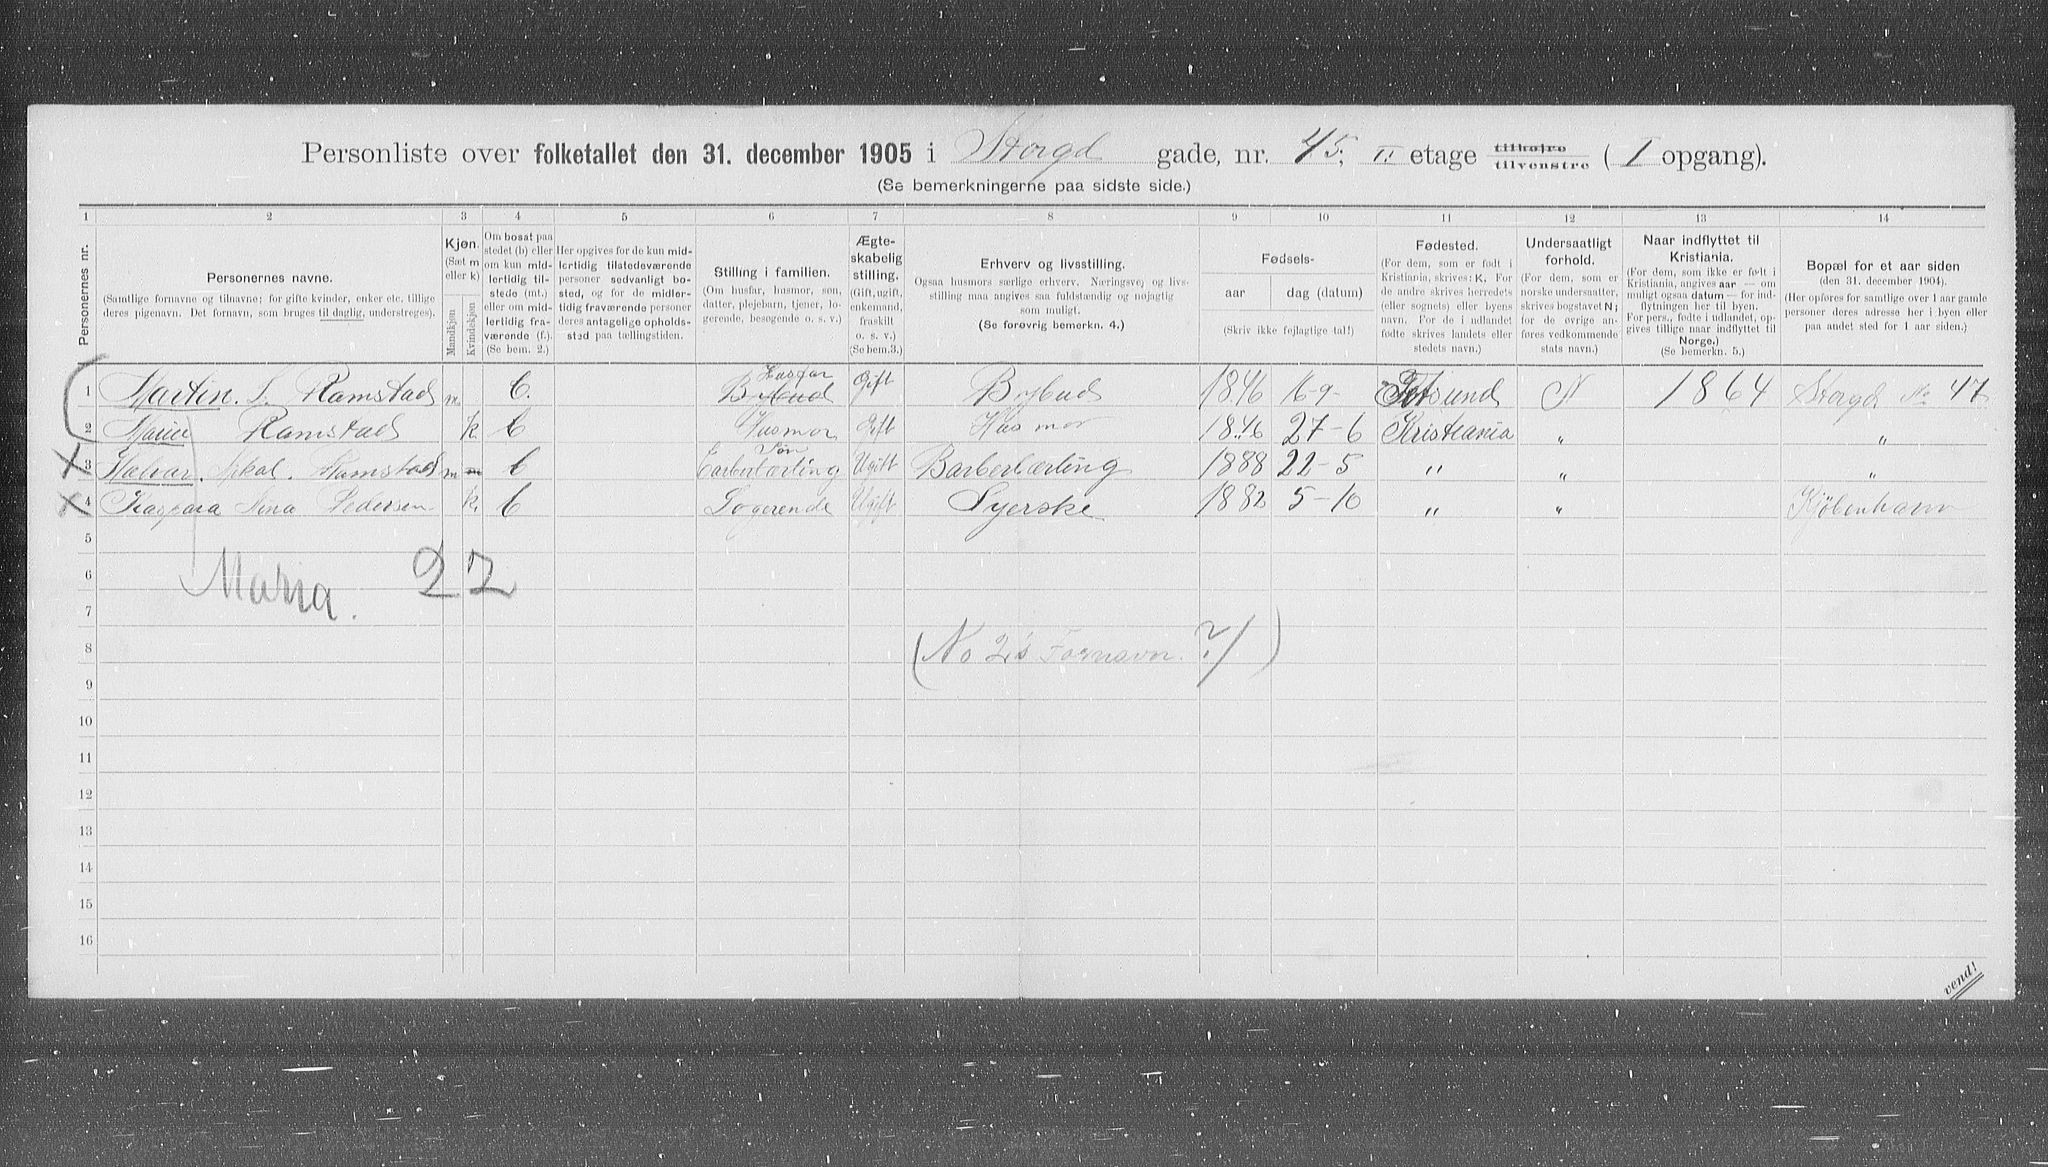 Personliste over folketallet den 31. december 1905 i Storgd gade, nr. 45, II etage tilhøjre tilvenstre ( I opgang).
(Se bemerkningerne paa sidste side.)
1 2 3 4 5 6 7 8 9 10 11 12 13 14
Personernes nr.
Personernes navne.
(Samtlige fornavne og tilnavne; for gifte kvinder, enker etc. tillige deres pigenavn. Det fornavn, som bruges til daglig, understreges).
Kjøn.
(Sæt m eller k)
Mandkjøn
Kvindekjøn
Om bosat paa stedet (b) eller om kun midlertidig tilstede (mt.) eller om midlertidig fraværende (f.).
(Se bem. 2.)
Her opgives for de kun midlertidig tilstedeværende personer sedvanligt bosted, og for de midlertidig fraværende personer deres antagelige opholdssted paa tællingstiden.
Stilling i familien.
(Om husfar, husmor, søn, datter, plejebarn, tjener, logerende, besøgende o. s. v.)
Ægteskabelig stilling.
(Gift, ugift, enkemand, fraskilt o. s. v.)
(Se bem.3.)
Erhverv og livsstilling.
Ogsaa husmors særlige erhverv. Næringsvej og livsstilling maa angives saa fuldstændig og nøjagtig som muligt.
(Se forøvrig bemerkn. 4.)
Fødsels-
aar
dag (datum)
(Skriv ikke fejlagtige tal!)
Fødested.
(For dem, som er født i Kristiania, skrives: K. For de andre skrives herredets (eller sognets) eller byens navn. For de i udlandet fødte skrives landets eller stedets navn.)
Undersaatligt forhold.
(For dem, som er norske undersaatter, skrives bogstavet N; for de øvrige anføres vedkommende stats navn.)
Naar indflyttet til Kristiania.
(For dem, som ikke er født i Kristiania, angives aar — om muligt ogsaa datum — for indflytningen her til byen. For pers., fødte i udlandet, opgives tillige naar indflyttet til Norge.)
(Se bemerkn. 5.)
Bopæl for et aar siden
(den 31. december 1904).
(Her opføres for samtlige over 1 aar gamle personer deres adresse her i byen eller paa andet sted for 1 aar siden.)
Husfar
1 Martin. L. Ramstad m. b. Bybud Gift Bybud 1846 16-9- Fetsund N 1864 Storgd No 47
2 Ramstad k. b Husmor Gift Husmor 1846 27-6 Kristiania " "
Søn
3 Halvar. Mikal. Ramstad m b Barberlærling Ugift Barberlærling 1888 22-5 " " "
4 Kaspara Lina Pedersen k. b Logerende Ugift Syerske 1882 5-10 " " Kjøbenhavn
5
6 Maria. 2 2
7
8 (No 2's Fornavn. ?/)
9
10
11
12
13
14
15
16
vend!